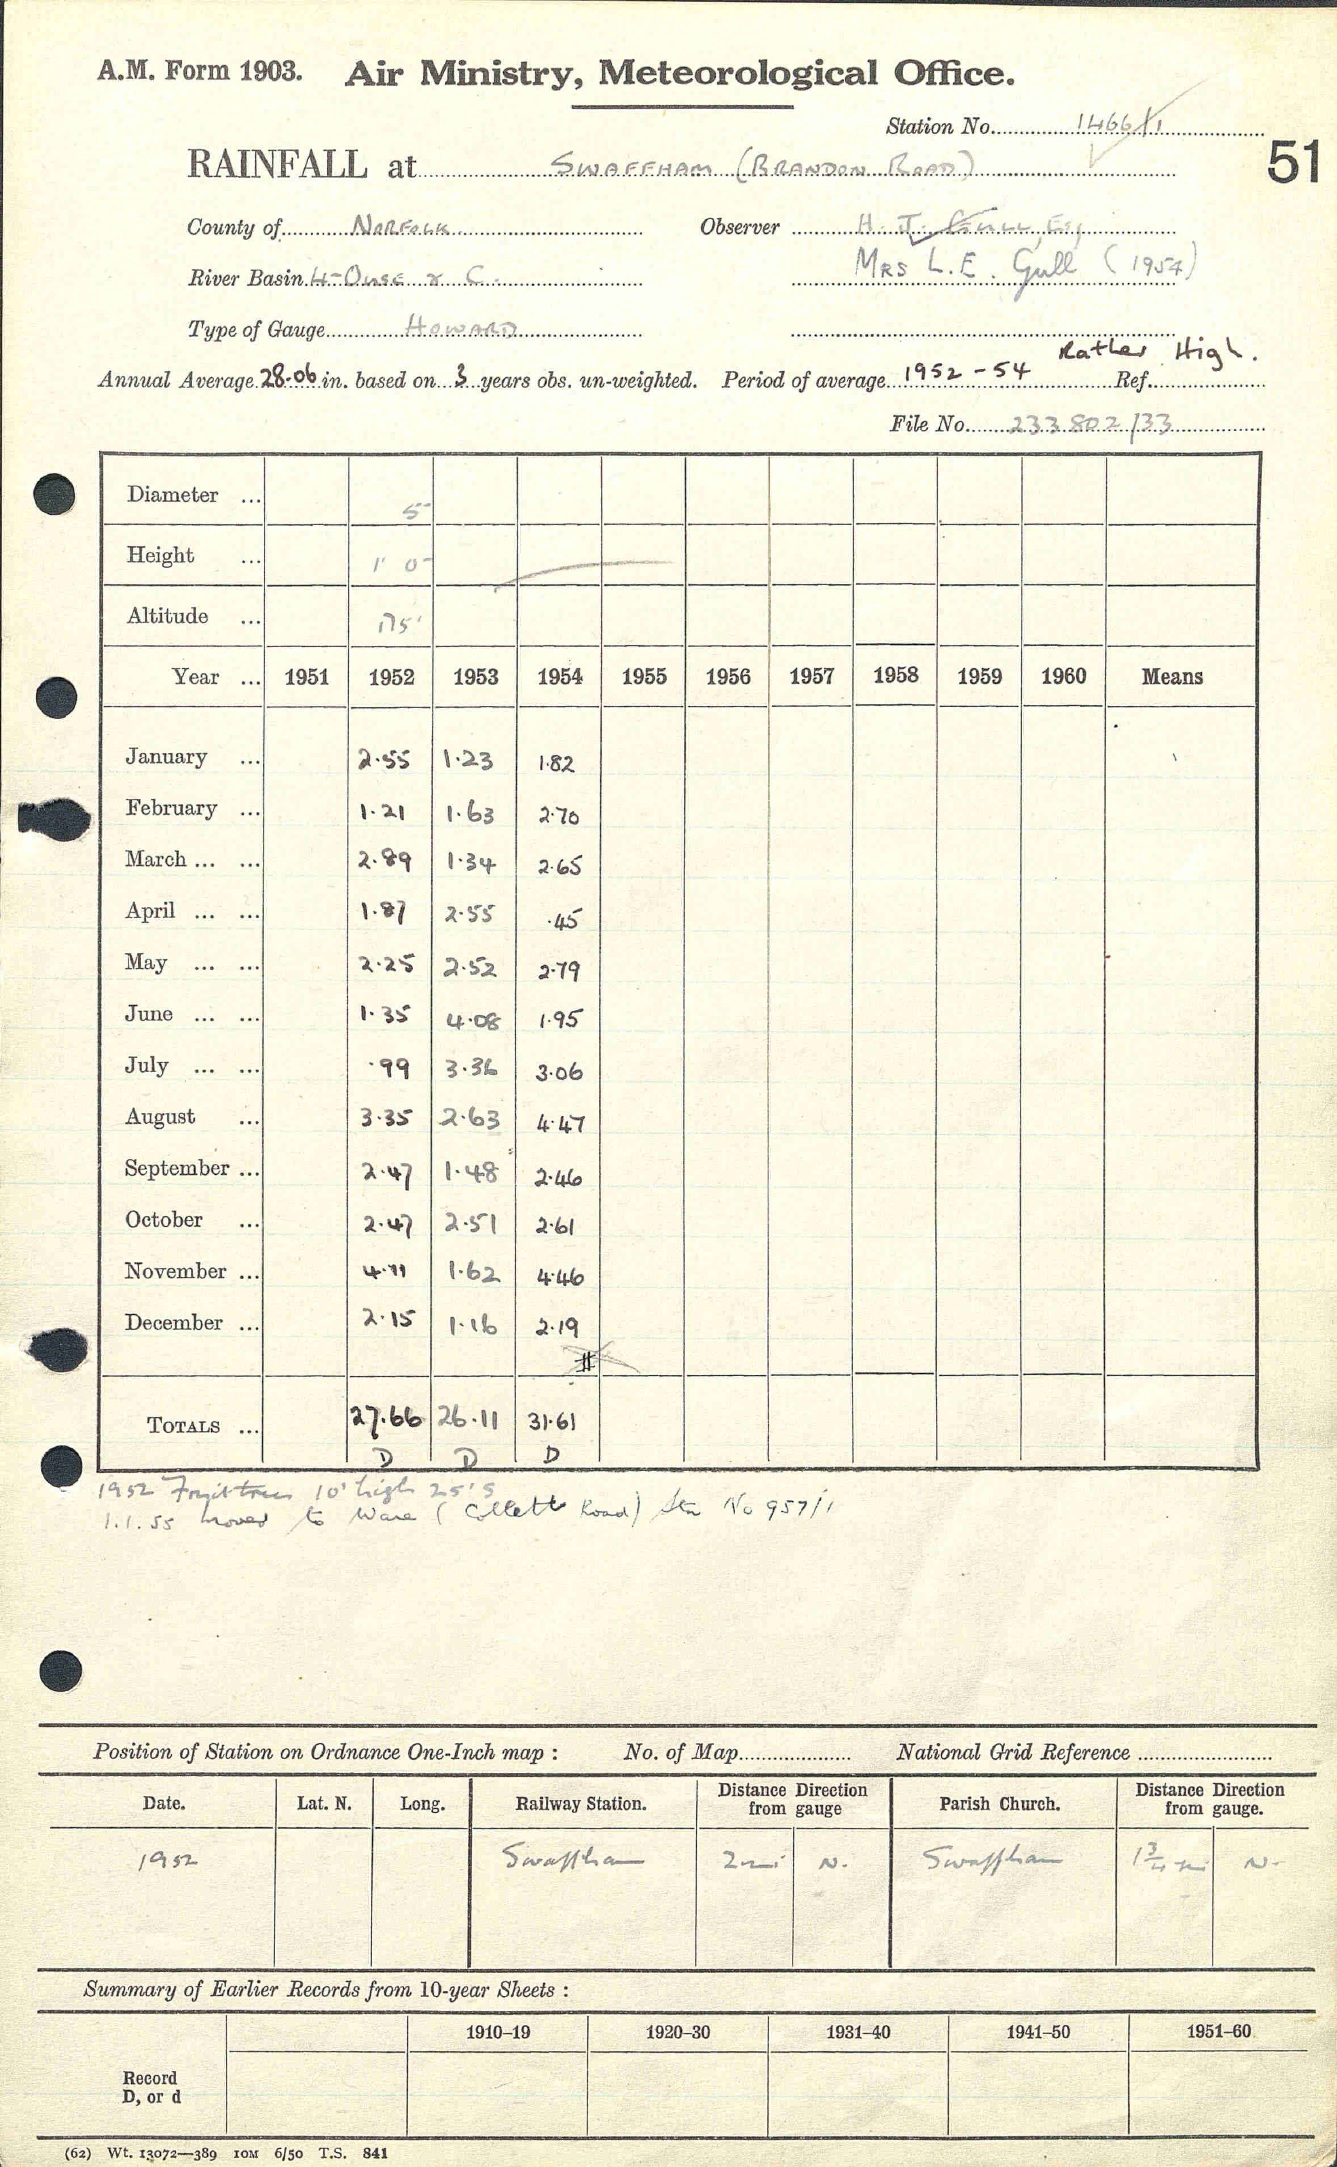 A.M. Form 1903. Air Ministry, Meteorological Office.
Station No. 1466/1
51
RAINFALL at SWAFFHAM (BRANDON ROAD)
County of NORFOLK Observer H. J. Gull, Esq
MRS L. E. Gull (1954)
River Basin 4-OUSE & C.
Type of Gauge HOWARD
Rather High.
Annual Average 28.06 in. based on 3 years obs. un-weighted. Period of average 1952-54 Ref.
File No. 233802/33
Diameter ... 5"
Height ... 1' 0"
Altitude ... 175'
Year ... 1951 1952 1953 1954 1955 1956 1957 1958 1959 1960 Means
January ... 2.55 1.23 1.82
February ... 1.21 1.63 2.70
March ... ... 2.89 1.34 2.65
April ... ... 1.87 2.55 .45
May ... ... 2.25 2.52 2.79
June ... ... 1.35 4.08 1.95
July ... ... .99 3.36 3.06
August ... 3.35 2.63 4.47
September ... 2.47 1.48 2.46
October ... 2.47 2.51 2.61
November ... 4.11 1.62 4.46
December ... 2.15 1.16 2.19
#
TOTALS ... 27.66 26.11 31.61
D D D
1952 Fruit trees 10' high 25' S
1.1.55 moved to Ware (Collett Road) Stn No 957/1
Position of Station on Ordnance One-Inch map : No. of Map National Grid Reference
Date. Lat. N. Long. Railway Station. Distance Direction from gauge Parish Church. Distance Direction from gauge.
1952 Swaffham 2 mi N. Swaffham 1 3/4 mi N.
Summary of Earlier Records from 10-year Sheets :
1910–19 1920–30 1931–40 1941–50 1951–60
Record
D, or d
(62) Wt. 13072—389 10M 6/50 T.S. 841